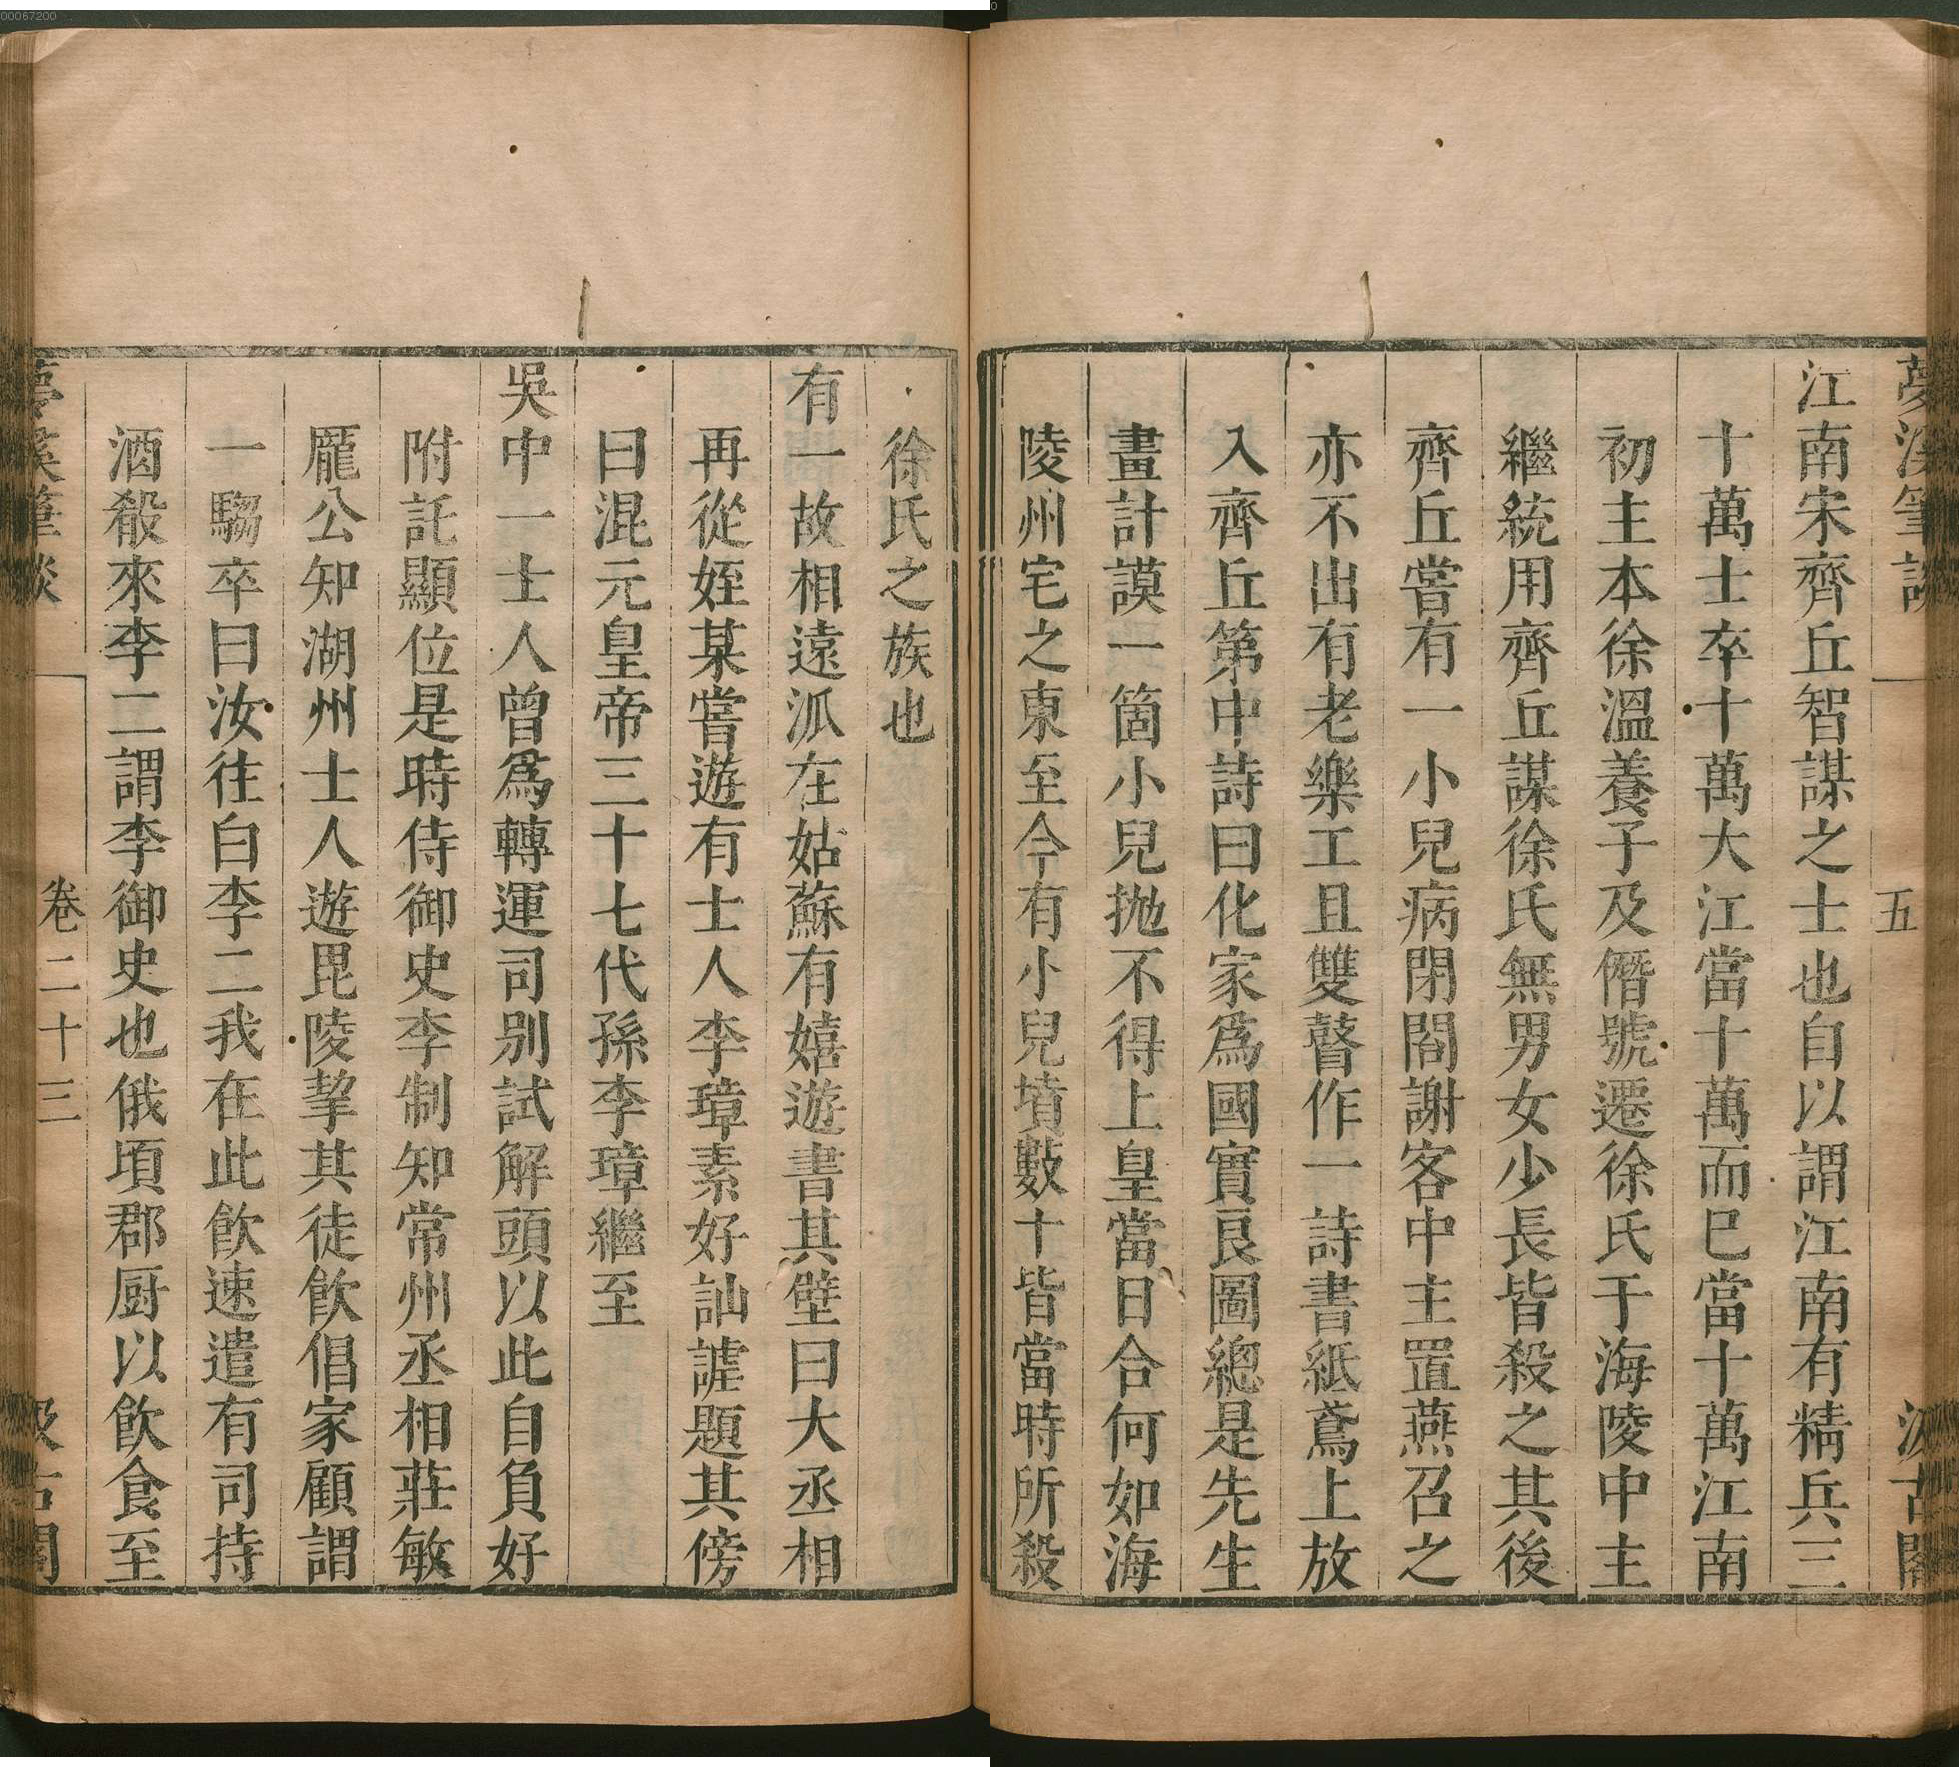 00067200
夢溪筆談
五
汲古閣
江南宋齊丘智謀之士也自以謂江南有精兵三
十萬士卒十萬大江當十萬而已當十萬江南
初主本徐溫養子及僭號遷徐氏于海陵中主
繼統用齊丘謀徐氏無男女少長皆殺之其後
齊丘嘗有一小兒病閉閤謝客中主置燕召之
亦不出有老樂工且雙瞽作一詩書紙鳶上放
入齊丘第中詩曰化家爲國實良圖總是先生
畫計謨一箇小兒拋不得上皇當日合何如海
陵州宅之東至今有小兒墳數十皆當時所殺
徐氏之族也
有一故相遠派在姑蘇有嬉遊書其壁曰大丞相
再從姪某嘗遊有士人李璋素好訕謔題其傍
曰混元皇帝三十七代孫李璋繼至
吳中一士人曾爲轉運司别試解頭以此自負好
附託顯位是時侍御史李制知常州丞相莊敏
龎公知湖州士人遊毘陵挈其徒飲倡家顧謂
一騶卒曰汝往白李二我在此飲速遣有司持
酒殽來李二謂李御史也俄頃郡厨以飲食至
夢溪筆談
卷二十三
汲古閣